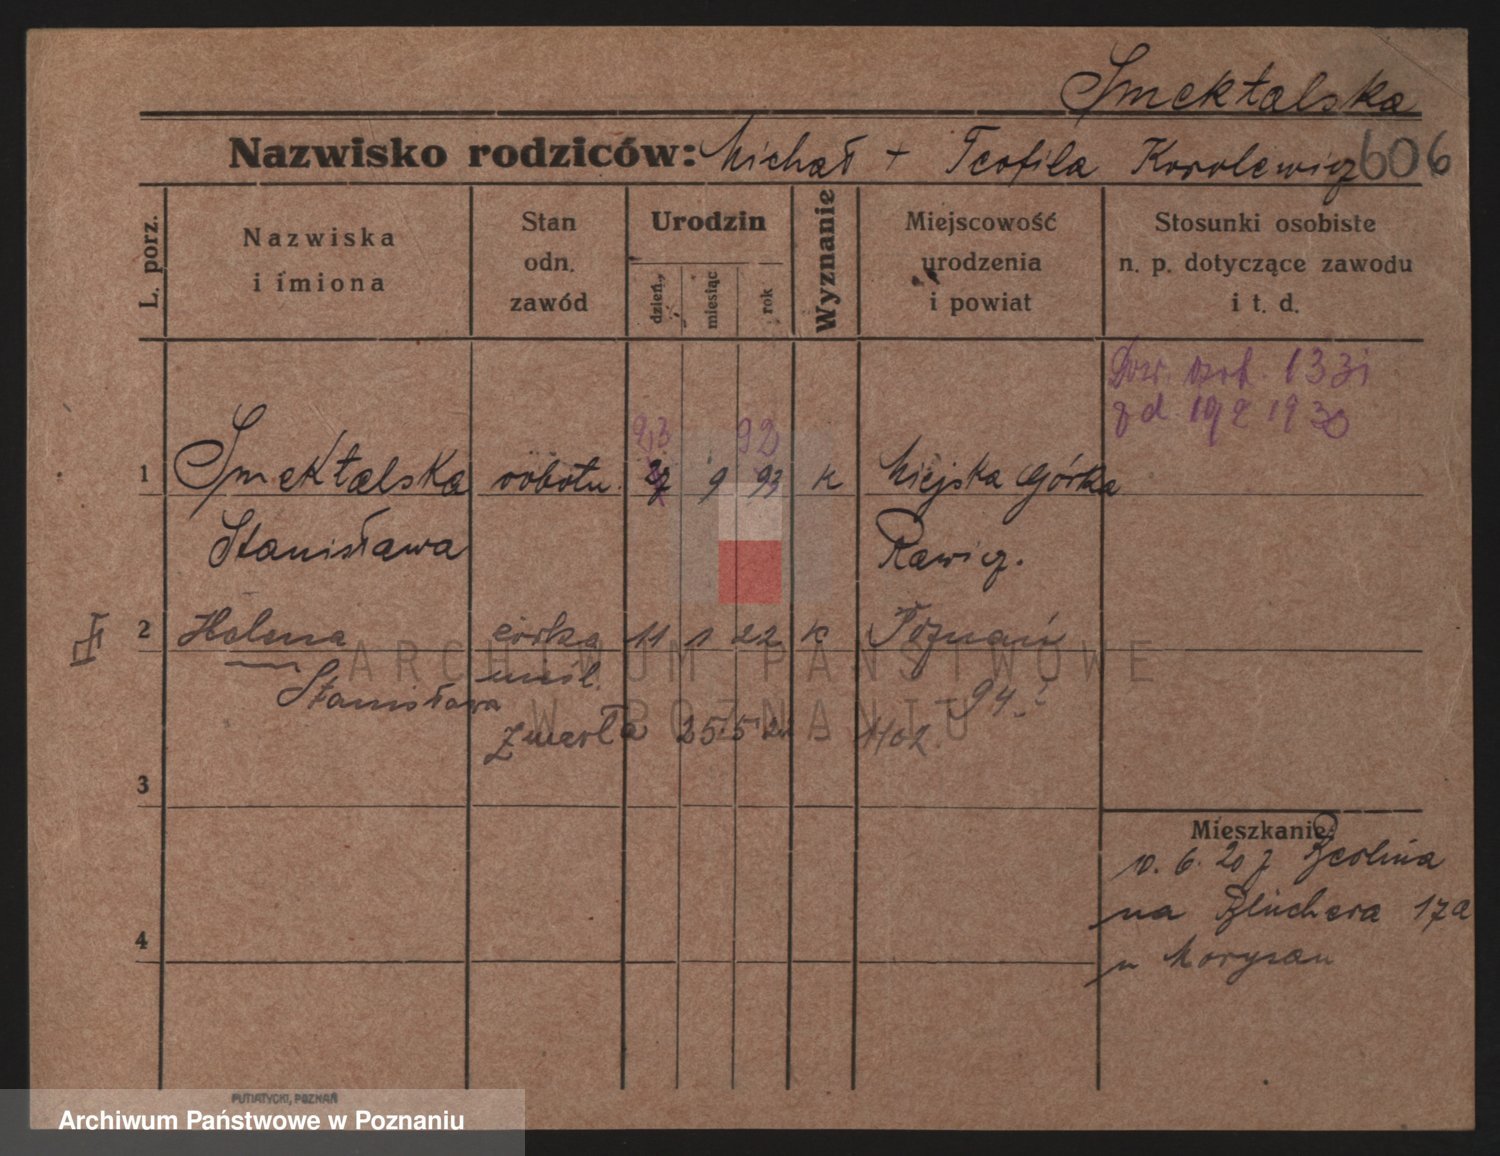 Smektalska
Nazwisko rodziców: Michał + Teofila Korolewicz 606
L. porz.
Nazwiska
i imiona
Stan
odn.
zawód
Urodzin
dzień
miesiąc
rok
Wyznanie
Miejscowość
urodzenia
i powiat
Stosunki osobiste
n. p. dotyczące zawodu
i t. d.
Dow. osob. 1331
z d 19 2 1930
23 92
1 Smektalska robotn. 9 93 k Miejska Górka
Stanisława Rawicz.
2 Helena córka 11 1 22 k Poznań
Stanisława nieśl. 94
zmarła 25 5 22
3
Mieszkanie:
10. 6. 20 z Berlina
na Blüchera 17a
4
u Morysan
ARCHIWUM PAŃSTWOWE
W POZNANIU
PUTIATYCKI, POZNAŃ
Archiwum Państwowe w Poznaniu